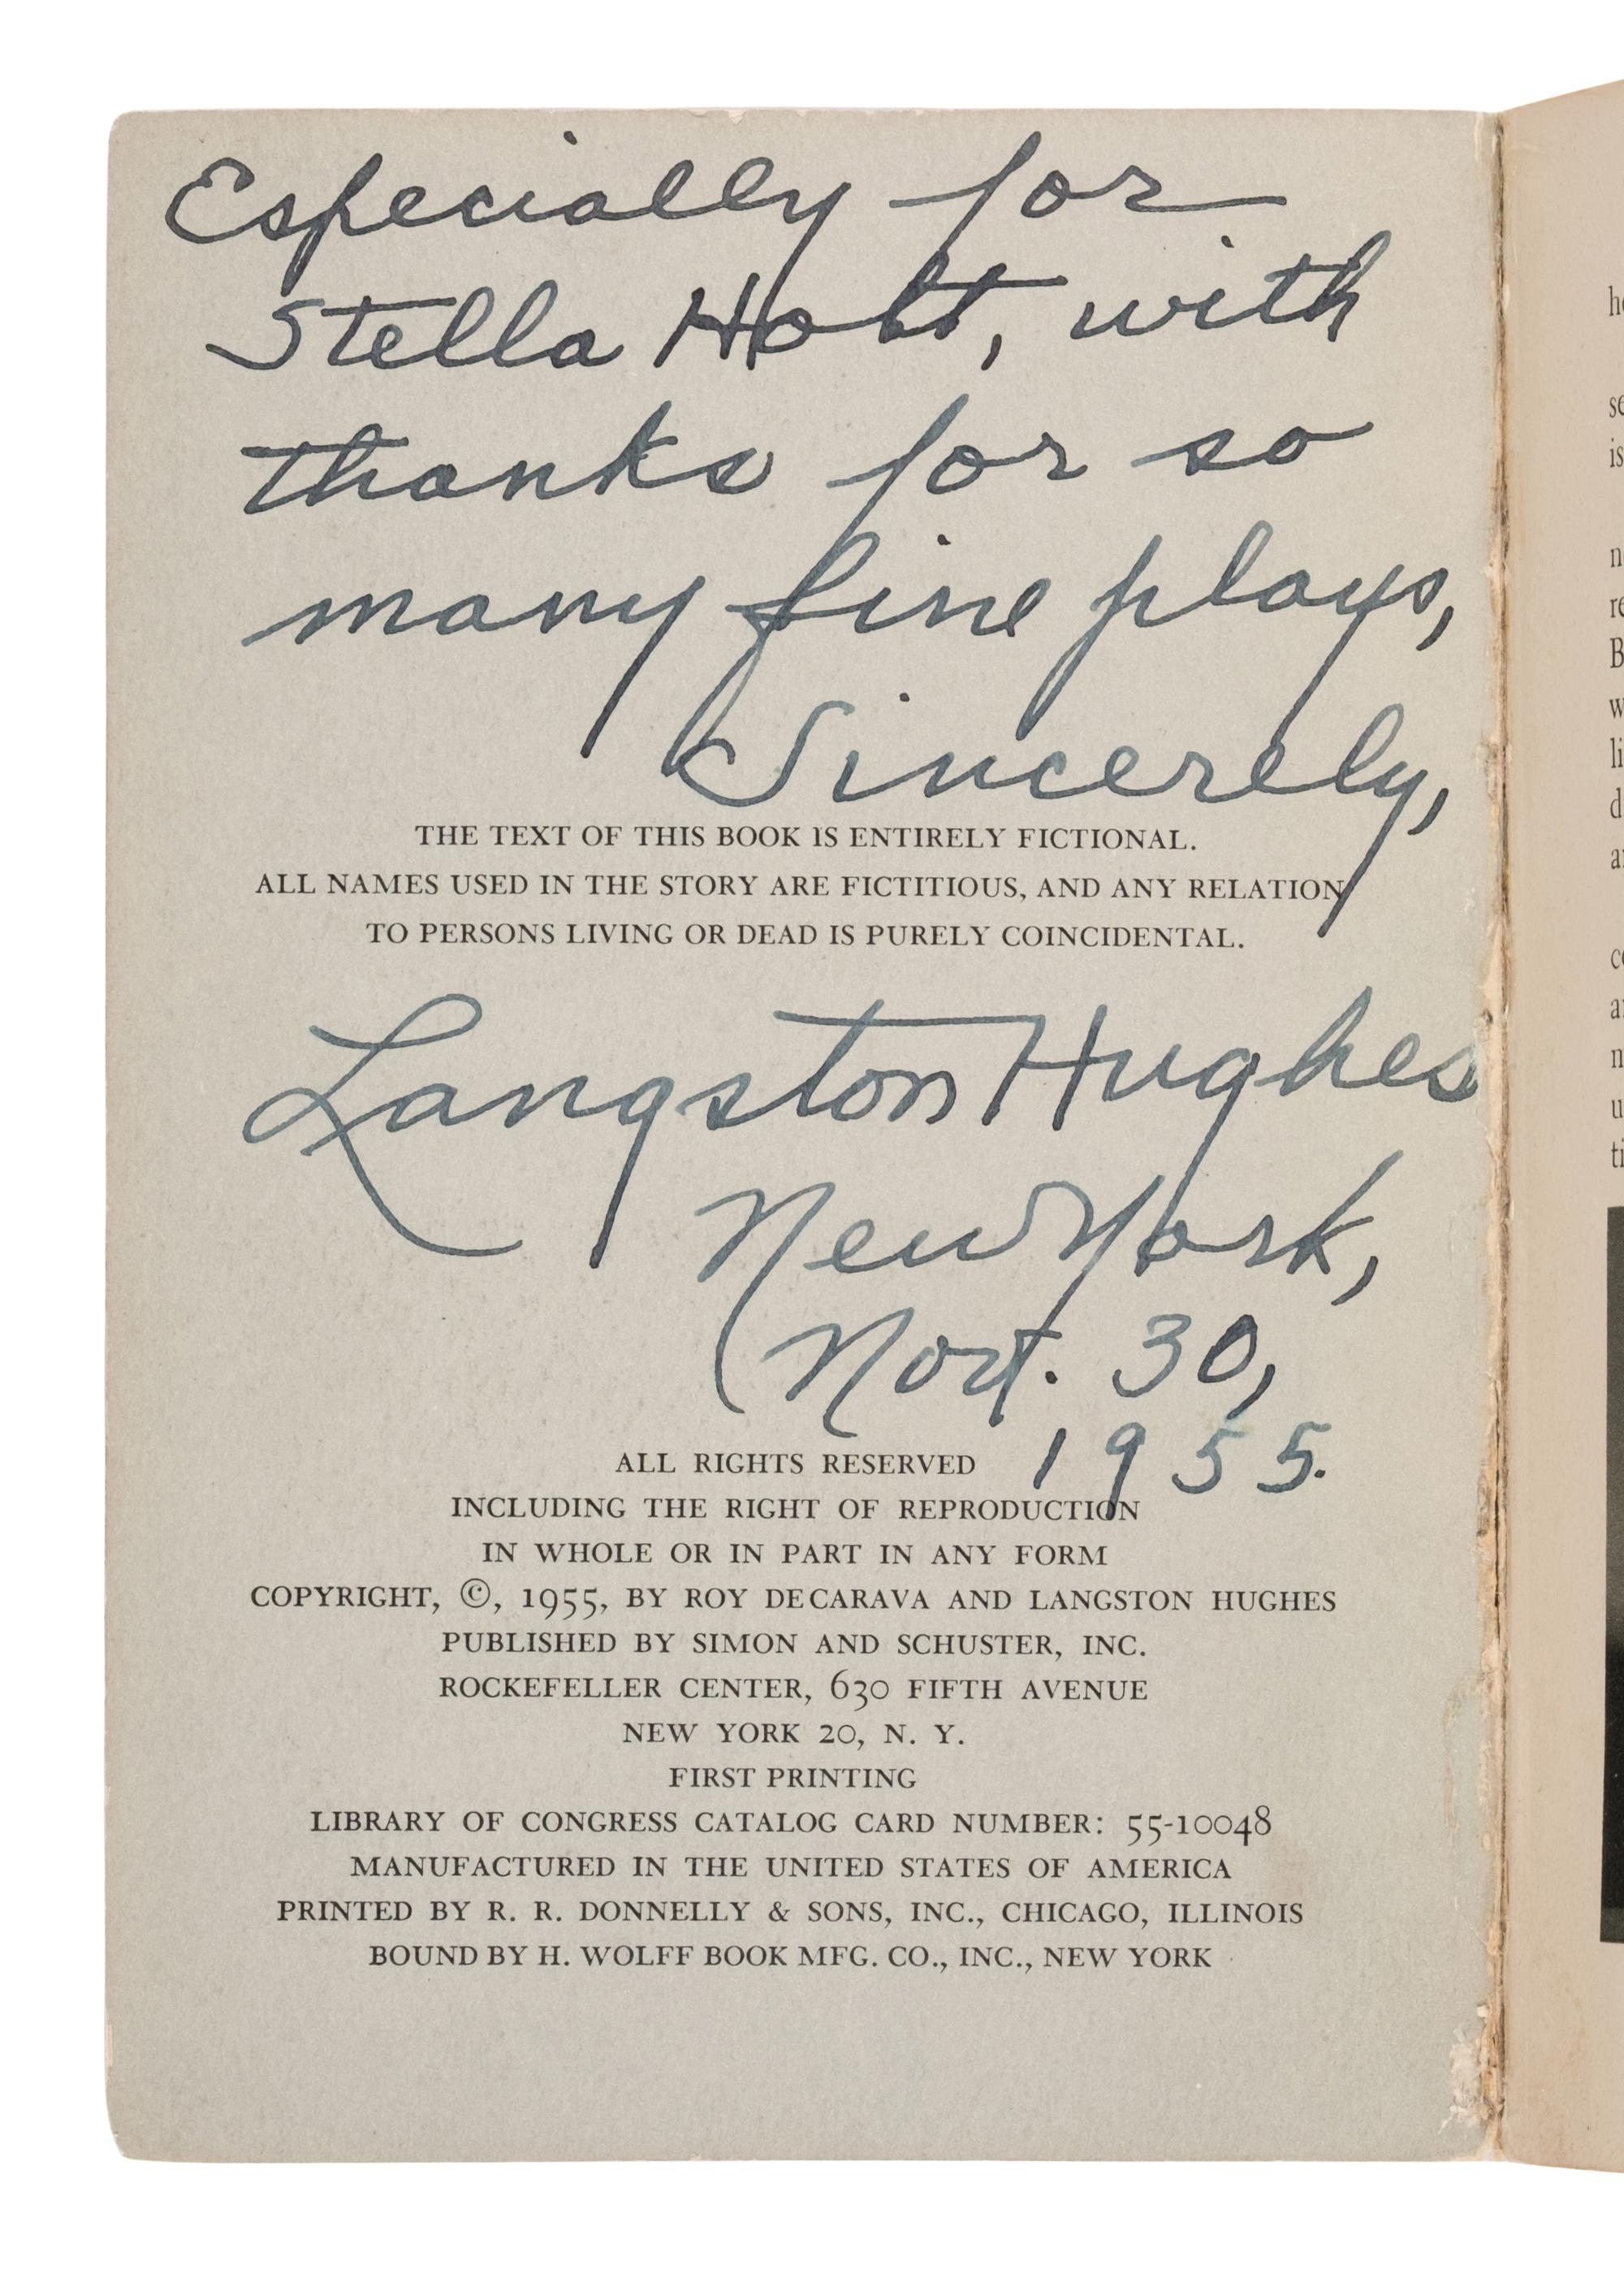 Especially for
Stella Holt, with
thanks for so
many fine plays,
Sincerely,
THE TEXT OF THIS BOOK IS ENTIRELY FICTIONAL.
ALL NAMES USED IN THE STORY ARE FICTITIOUS, AND ANY RELATION
TO PERSONS LIVING OR DEAD IS PURELY COINCIDENTAL.
Langston Hughes
New York,
30,
1955.
ALL RIGHTS RESERVED
INCLUDING THE RIGHT OF REPRODUCTION
IN WHOLE OR IN PART IN ANY FORM
COPYRIGHT, ©, 1955, BY ROY DECARAVA AND LANGSTON HUGHES
PUBLISHED BY SIMON AND SCHUSTER, INC.
ROCKEFELLER CENTER, 630 FIFTH AVENUE
NEW YORK 20, N. Y.
FIRST PRINTING
LIBRARY OF CONGRESS CATALOG CARD NUMBER: 55-10048
MANUFACTURED IN THE UNITED STATES OF AMERICA
PRINTED BY R. R. DONNELLY & SONS, INC., CHICAGO, ILLINOIS
BOUND BY H. WOLFF BOOK MFG. CO., INC., NEW YORK